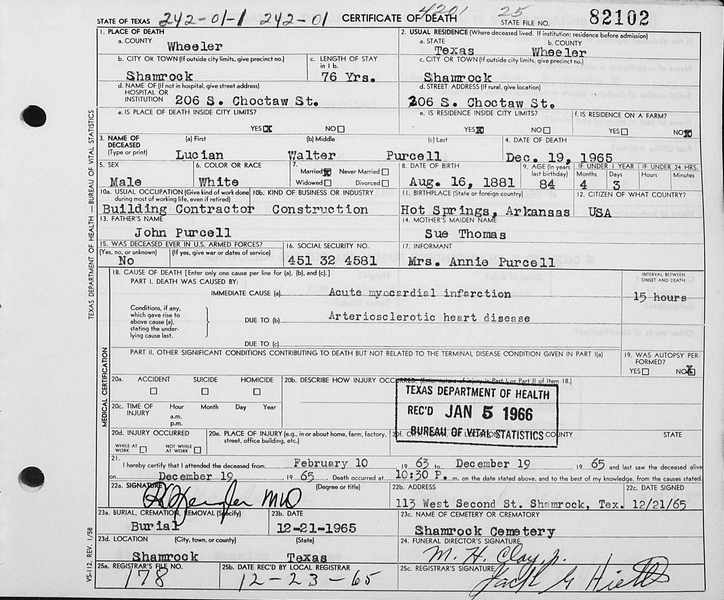 STATE OF TEXAS 242-01-1 242-01 CERTIFICATE OF DEATH 4201 25 STATE FILE NO. 82102
1. PLACE OF DEATH
2. USUAL RESIDENCE (Where deceased lived. If institution: residence before admission)
a. COUNTY Wheeler
a. STATE Texas b. COUNTY Wheeler
b. CITY OR TOWN (If outside city limits, give precinct no.) Shamrock
c. LENGTH OF STAY in 1 b. 76 Yrs.
c. CITY OR TOWN (If outside city limits, give precinct no.) Shamrock
d. NAME OF (If not in hospital, give street address) HOSPITAL OR INSTITUTION 206 S. Choctaw St.
d. STREET ADDRESS (If rural, give location) 206 S. Choctaw St.
e. IS PLACE OF DEATH INSIDE CITY LIMITS? YES X NO
e. IS RESIDENCE INSIDE CITY LIMITS? YES X NO
f. IS RESIDENCE ON A FARM? YES NO X
3. NAME OF DECEASED (Type or print) (a) First Lucian (b) Middle Walter (c) Last Purcell
4. DATE OF DEATH Dec. 19, 1965
5. SEX Male
6. COLOR OR RACE White
7. Married X Never Married Widowed Divorced
8. DATE OF BIRTH Aug. 16, 1881
9. AGE (In years last birthday) 84
IF UNDER 1 YEAR Months 4 Days 3
IF UNDER 24 HRS. Hours Minutes
10a. USUAL OCCUPATION (Give kind of work done during most of working life, even if retired) Building Contractor
10b. KIND OF BUSINESS OR INDUSTRY Construction
11. BIRTHPLACE (State or foreign country) Hot Springs, Arkansas
12. CITIZEN OF WHAT COUNTRY? USA
13. FATHER'S NAME John Purcell
14. MOTHER'S MAIDEN NAME Sue Thomas
15. WAS DECEASED EVER IN U.S. ARMED FORCES? (Yes, no, or unknown) No (If yes, give war or dates of service)
16. SOCIAL SECURITY NO. 451 32 4581
17. INFORMANT Mrs. Annie Purcell
18. CAUSE OF DEATH [Enter only one cause per line for (a), (b), and (c).]
PART I. DEATH WAS CAUSED BY:
INTERVAL BETWEEN ONSET AND DEATH
IMMEDIATE CAUSE (a) Acute myocardial infarction 15 hours
Conditions, if any, which gave rise to above cause (a), stating the underlying cause last.
DUE TO (b) Arteriosclerotic heart disease
DUE TO (c)
PART II. OTHER SIGNIFICANT CONDITIONS CONTRIBUTING TO DEATH BUT NOT RELATED TO THE TERMINAL DISEASE CONDITION GIVEN IN PART I(a)
19. WAS AUTOPSY PERFORMED? YES NO X
20a. ACCIDENT SUICIDE HOMICIDE
20b. DESCRIBE HOW INJURY OCCURRED. (Enter nature of injury in Part I or Part II of item 18.)
20c. TIME OF INJURY Hour Month Day Year a.m. p.m.
20d. INJURY OCCURRED WHILE AT WORK NOT WHILE AT WORK
20e. PLACE OF INJURY (e.g., in or about home, farm, factory, street, office building, etc.)
20f. COUNTY STATE
TEXAS DEPARTMENT OF HEALTH
REC'D JAN 5 1966
BUREAU OF VITAL STATISTICS
21. I hereby certify that I attended the deceased from February 10 1963 to December 19 1965 and last saw the deceased alive
on December 19 1965 Death occurred at 10:30 P. m. on the date stated above, and to the best of my knowledge, from the causes stated.
22a. SIGNATURE MD (Degree or title)
22b. ADDRESS 113 West Second St. Shamrock, Tex.
22c. DATE SIGNED 12/21/65
23a. BURIAL, CREMATION, REMOVAL (Specify) Burial
23b. DATE 12-21-1965
23c. NAME OF CEMETERY OR CREMATORY Shamrock Cemetery
23d. LOCATION (City, town, or county) (State) Shamrock Texas
24. FUNERAL DIRECTOR'S SIGNATURE M. H. Clay, Jr.
25a. REGISTRAR'S FILE NO. 178
25b. DATE REC'D BY LOCAL REGISTRAR 12-23-65
25c. REGISTRAR'S SIGNATURE
TEXAS DEPARTMENT OF HEALTH — BUREAU OF VITAL STATISTICS
MEDICAL CERTIFICATION
VS-112 REV. 1/58